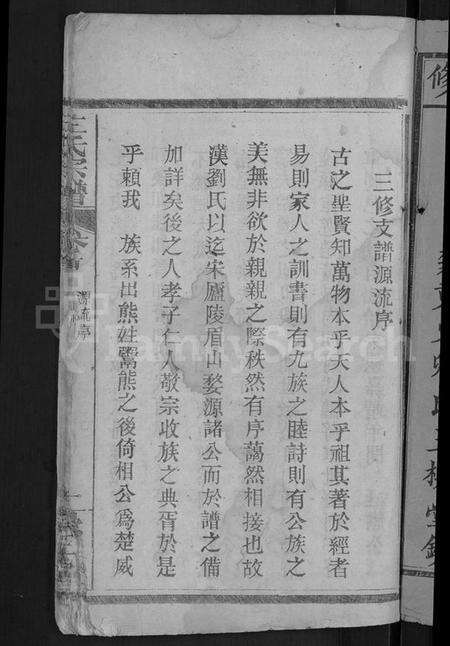 三修支譜源流序
古之聖賢知萬物本乎天人本乎祖其著於經者
易則家人之訓書則有九族之睦詩則有公族之
美無非欲於親親之際秩然有序藹然相接也故
漢劉氏以迄宋廬陵眉山婺源諸公而於譜之備
加詳矣後之人孝子仁人敬宗收族之典胥於是
乎賴我 族系出熊姓鬻熊之後倚相公爲楚威
氏宗譜
卷首
源流序
一
修
FamilySearch